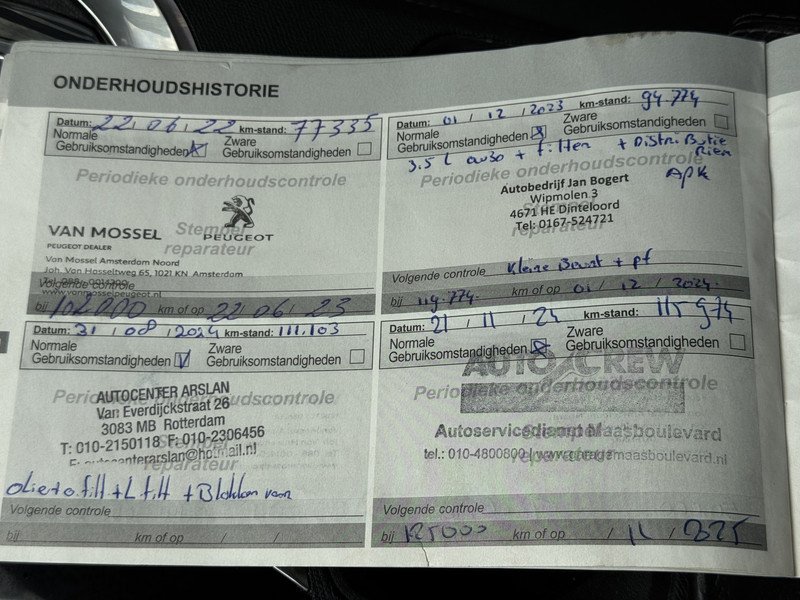 ONDERHOUDSHISTORIE
Datum: 22 / 06 / 22 km-stand: 77335
Normale Gebruiksomstandigheden
Zware Gebruiksomstandigheden
Periodieke onderhoudscontrole
Stempel reparateur
VAN MOSSEL
PEUGEOT DEALER
PEUGEOT
Van Mossel Amsterdam Noord
Joh. Van Hasseltweg 65, 1021 KN Amsterdam
www.vanmosselpeugeot.nl
Volgende controle
bij 102000 km of op 22 / 06 / 23
Datum: 01 / 12 / 2023 km-stand: 94.774
Normale Gebruiksomstandigheden
Zware Gebruiksomstandigheden
3.5 L
+ Filter + Distributie Riem
APK
Periodieke onderhoudscontrole
Stempel reparateur
Autobedrijf Jan Bogert
Wipmolen 3
4671 HE Dinteloord
Tel: 0167-524721
Volgende controle Kleine Beurt + pf
bij 114.774- km of op 01 / 12 / 2024
Datum: 31 / 08 / 2024 km-stand: 111.103
Normale Gebruiksomstandigheden
Zware Gebruiksomstandigheden
Periodieke onderhoudscontrole
Stempel reparateur
AUTOCENTER ARSLAN
Van Everdijckstraat 26
3083 MB Rotterdam
T: 010-2150118 F: 010-2306456
E: autocenterarslan@hotmail.nl
olie + o.filt + L filt + Blokken voor
Volgende controle
bij km of op / /
Datum: 21 / 11 / 24 km-stand: 115 974
Normale Gebruiksomstandigheden
Zware Gebruiksomstandigheden
AUTO CREW
Periodieke onderhoudscontrole
Stempel reparateur
Maasboulevard
tel.: 010-4800800 | www.garagemaasboulevard.nl
Volgende controle
bij 125000 km of op / 11 / 2025